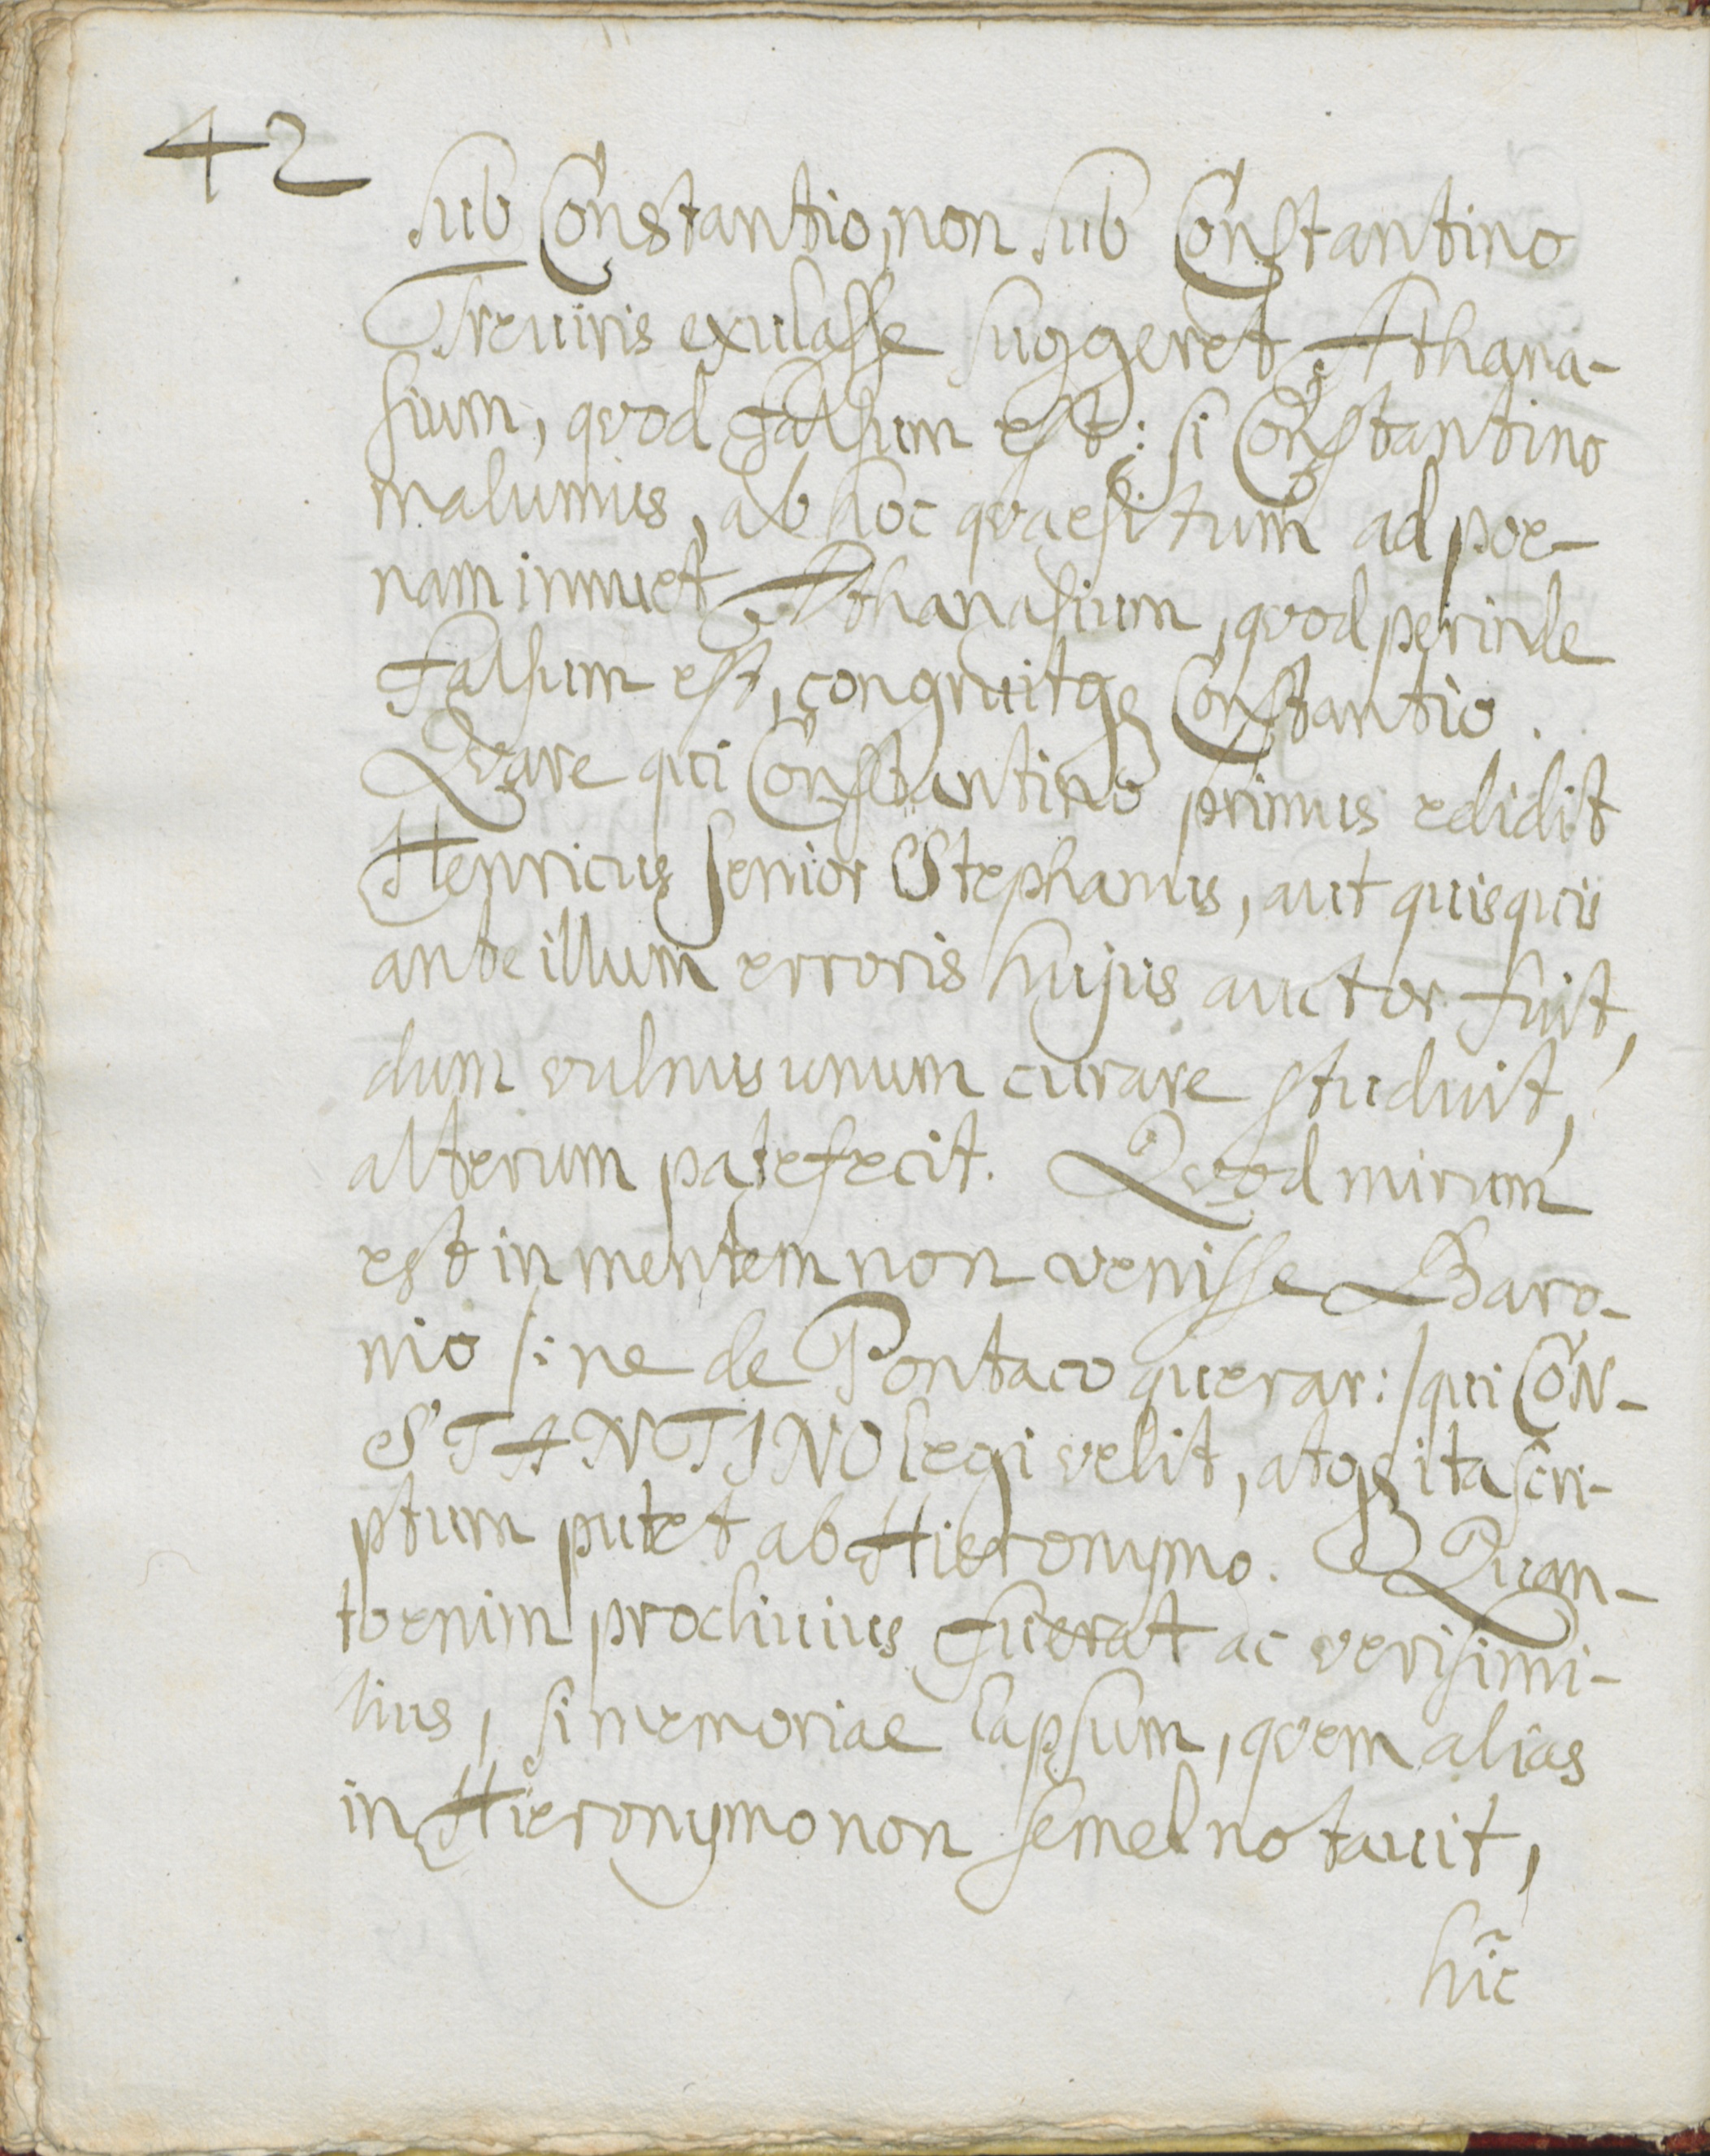 42
sub Constantio, non sub Constantino
Treuiris exulasse suggeret Athana-
sium, qvod falsum est: si Constantino
malumus, ab hoc qvaesitum ad poe-
nam innuet Athanasium, qvod perinde
falsum est, congruitqe Constantio.
Qvare qui Constantino primus edidit
Henricus senior Stephanus, aut quisquis
ante illum erroris hujus auctor fuit,
dum vulnus unum curare studuit,
alterum patefecit. Qvod mirum
est in mentem non venisse Baro-
nio /: ne de Pontaco querar: / qui CON-
STANTINO legi velit, atqe ita scri-
ptum putet ab Hieronymo. Quan-
to enim procliuius fuerat ac verisimi-
lius, si memoriae lapsum, qvem aliàs
in Hieronymo non semel notauit,
hîc